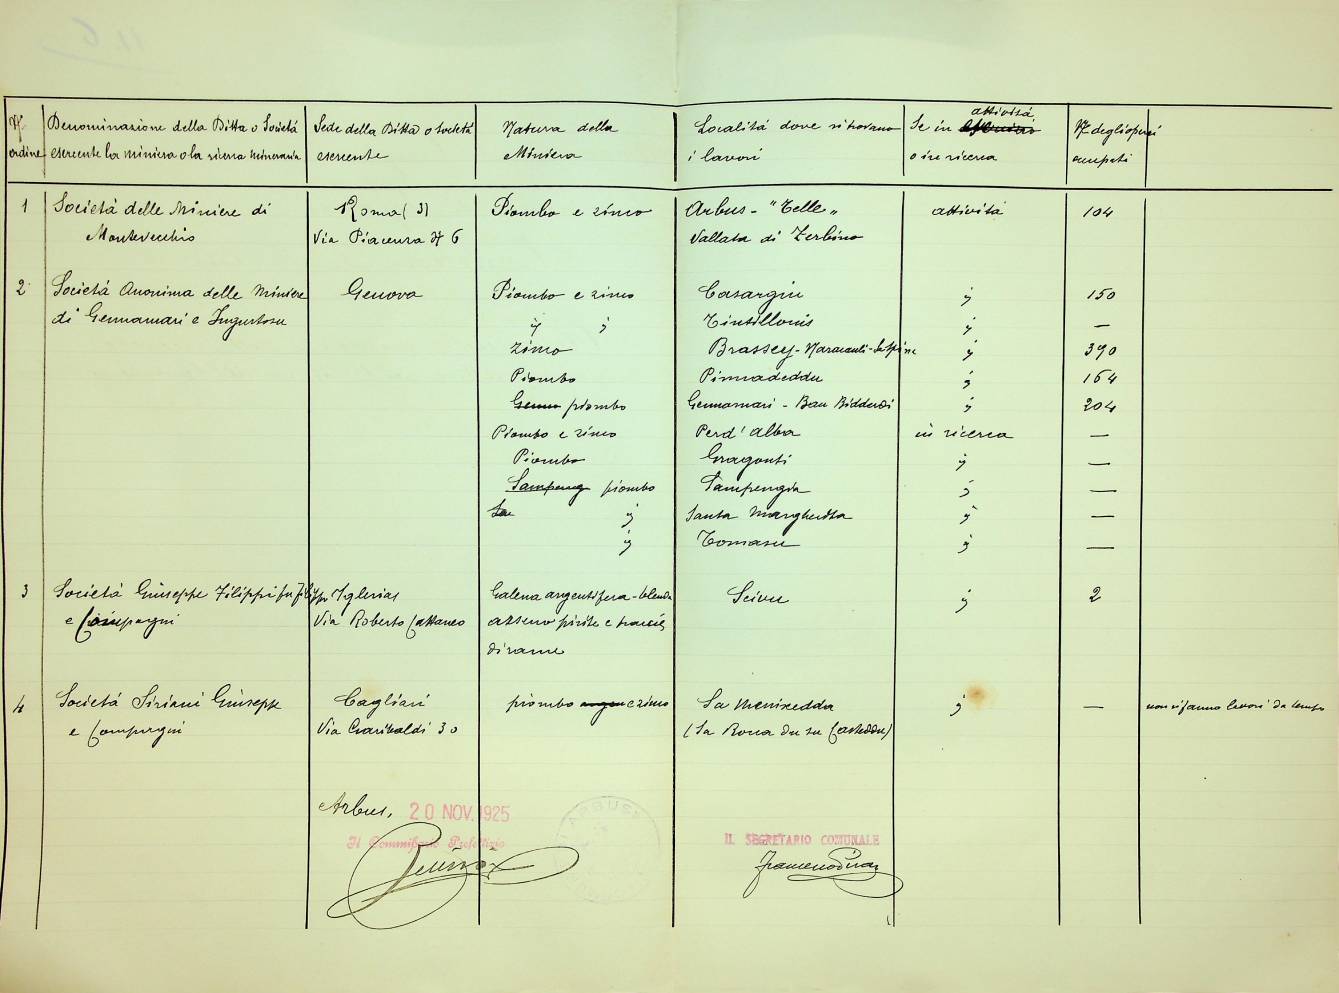 N° Denominazione della Ditta o Società Sede della Ditta o società Natura della Località dove si trovano Se in attività N° degli operai
ordine esercente la miniera o la ricerca mineraria esercente Miniera i lavori o in ricerca occupati
1 Società delle Miniere di Roma (3) Piombo e zinco Arbus - "Telle" attività 104
Montevecchio Via Piacenza N 6 Vallata di Zerbino
2 Società Anonima delle Miniere Genova Piombo e zinco Casargiu " 150
di Gennamari e Ingurtosu " " Tintillonis " —
zinco Brassey - Naracauli - " 390
Piombo Pinnadeddu " 164
piombo Gennamari - Bau " 204
Piombo e zinco Perd'alba in ricerca —
Piombo " —
piombo " —
" Santa Margherita " —
" " —
3 Società Giuseppe Filippi fu Filippo Iglesias Galena argentifera - blenda Scivu " 2
e Compagni Via Roberto Cattaneo pirite e traccie
di rame
4 Società Siriani Giuseppe Cagliari piombo e zinco Sa Menixedda " — non si fanno lavori da tempo
e Compagni Via Garibaldi 30 (Sa Rocca de su Casteddu)
Arbus, 20 NOV. 1925 ARBUS
Il Commissario Prefettizio IL SEGRETARIO COMUNALE